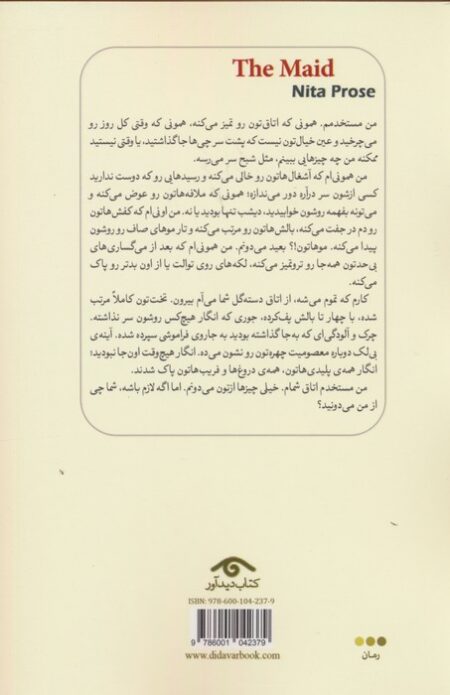 The Maid
Nita Prose
من مستخدمم. همونی که اتاق‌تون رو تمیز می‌کنه، همونی که وقتی کل روز رو
می‌چرخید و عین خیال‌تون نیست که پشت سر چی‌ها جا گذاشتید، یا وقتی نیستید
ممکنه من چه چیزهایی ببینم، مثل شبح سر می‌رسه.
من همونی‌ام که آشغال‌هاتون رو خالی می‌کنه و رسیدهایی رو که دوست ندارید
کسی ازشون سر درآره دور می‌ندازه؛ همونی که ملافه‌هاتون رو عوض می‌کنه و
می‌تونه بفهمه روشون خوابیدید، دیشب تنها بودید یا نه. من اونی‌ام که کفش‌هاتون
رو دم در جفت می‌کنه، بالش‌هاتون رو مرتب می‌کنه و تار موهای صاف رو روشون
پیدا می‌کنه. موهاتون!؟ بعید می‌دونم. من همونی‌ام که بعد از می‌گساری‌های
بی‌حدتون همه‌جا رو تروتمیز می‌کنه، لکه‌های روی توالت یا از اون بدتر رو پاک
می‌کنه.
کارم که تموم می‌شه، از اتاق دسته‌گل شما می‌آم بیرون. تخت‌تون کاملاً مرتب
شده، با چهار تا بالش پف‌کرده، جوری که انگار هیچ‌کس روشون سر نذاشته.
چرک و آلودگی‌ای که به‌جا گذاشته بودید به جاروی فراموشی سپرده شده. آینه‌ی
بی‌لک دوباره معصومیت چهره‌تون رو نشون می‌ده. انگار هیچ‌وقت اون‌جا نبودید؛
انگار همه‌ی پلیدی‌هاتون، همه‌ی دروغ‌ها و فریب‌هاتون پاک شدند.
من مستخدم اتاق شمام. خیلی چیزها ازتون می‌دونم. اما اگه لازم باشه، شما چی
از من می‌دونید؟
کتاب دیدآور
ISBN: 978-600-104-237-9
9 786001 042379
www.didavarbook.com
رمان